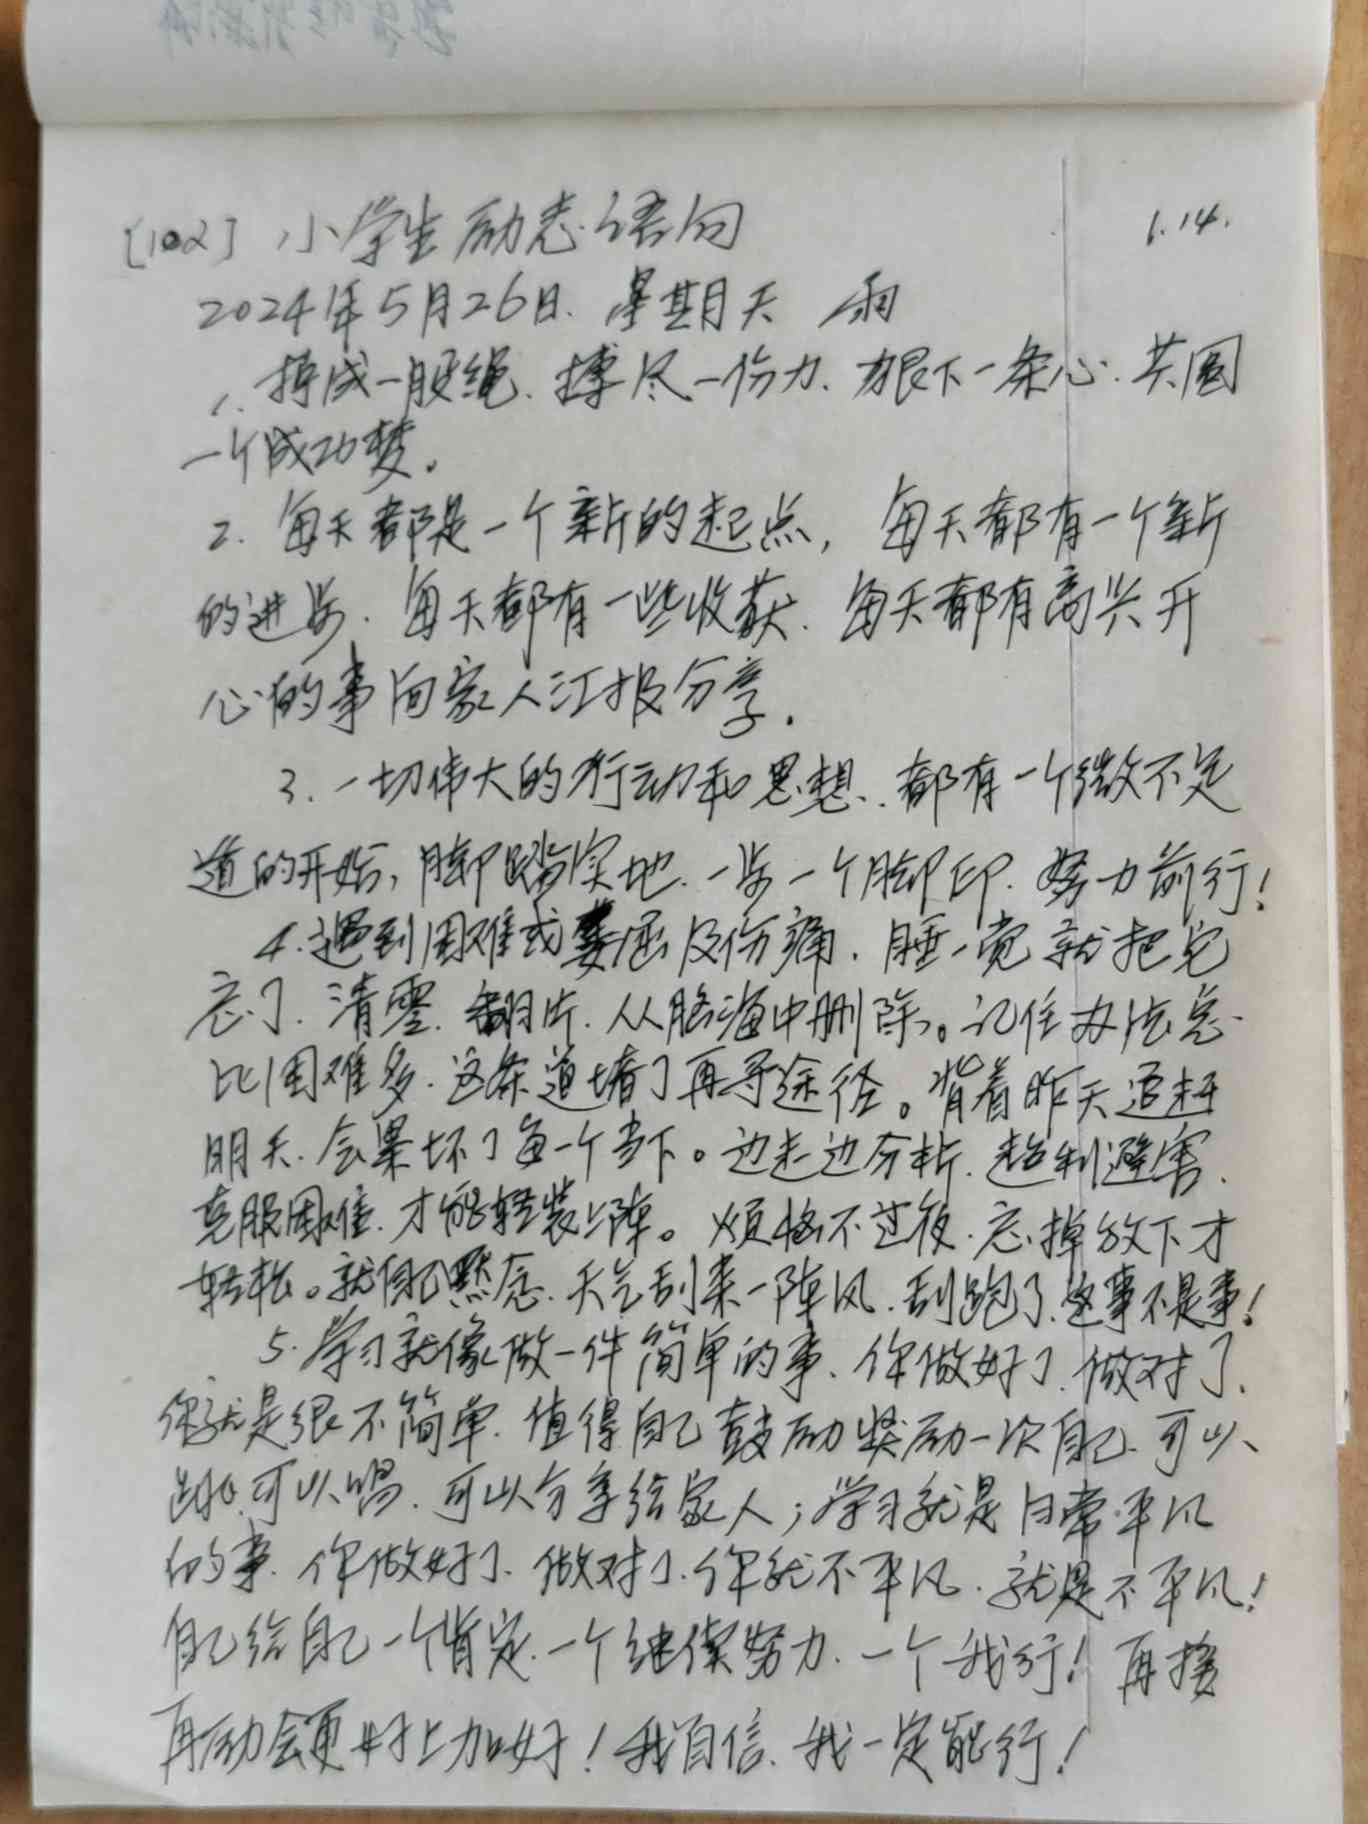 [102] 小学生励志语句 6.14.
2024年5月26日. 星期天 雨
1. 拧成一股绳. 搏尽一份力. 狠下一条心. 共圆
一个成功梦。
2. 每天都是一个新的起点, 每天都有一个新
的进步. 每天都有一些收获. 每天都有高兴开
心的事向家人汇报分享.
3. 一切伟大的行动和思想. 都有一个微不足
道的开始, 脚踏实地. 一步一个脚印. 努力前行!
4. 遇到困难或委屈及伤痛. 睡一觉就把它
忘了. 清零. 翻片. 从脑海中删除。记住办法总
比困难多. 这条道堵了再寻途径。背着昨天追赶
明天. 会累坏了每一个当下。边走边分析. 趋利避害.
克服困难. 才能轻装上阵。烦恼不过夜. 忘掉放下才
轻松。就自己默念. 天气刮来一阵风. 刮跑了. 这事不是事!
5. 学习就像做一件简单的事. 你做好了. 做对了.
你就是很不简单. 值得自己鼓励奖励一次自己. 可以
跳. 可以唱. 可以分享给家人; 学习就是日常平凡
的事. 你做好了. 做对了. 你就不平凡. 就是不平凡!
自己给自己一个肯定. 一个继续努力. 一个我行! 再接
再励会更好上加好! 我自信. 我一定能行!